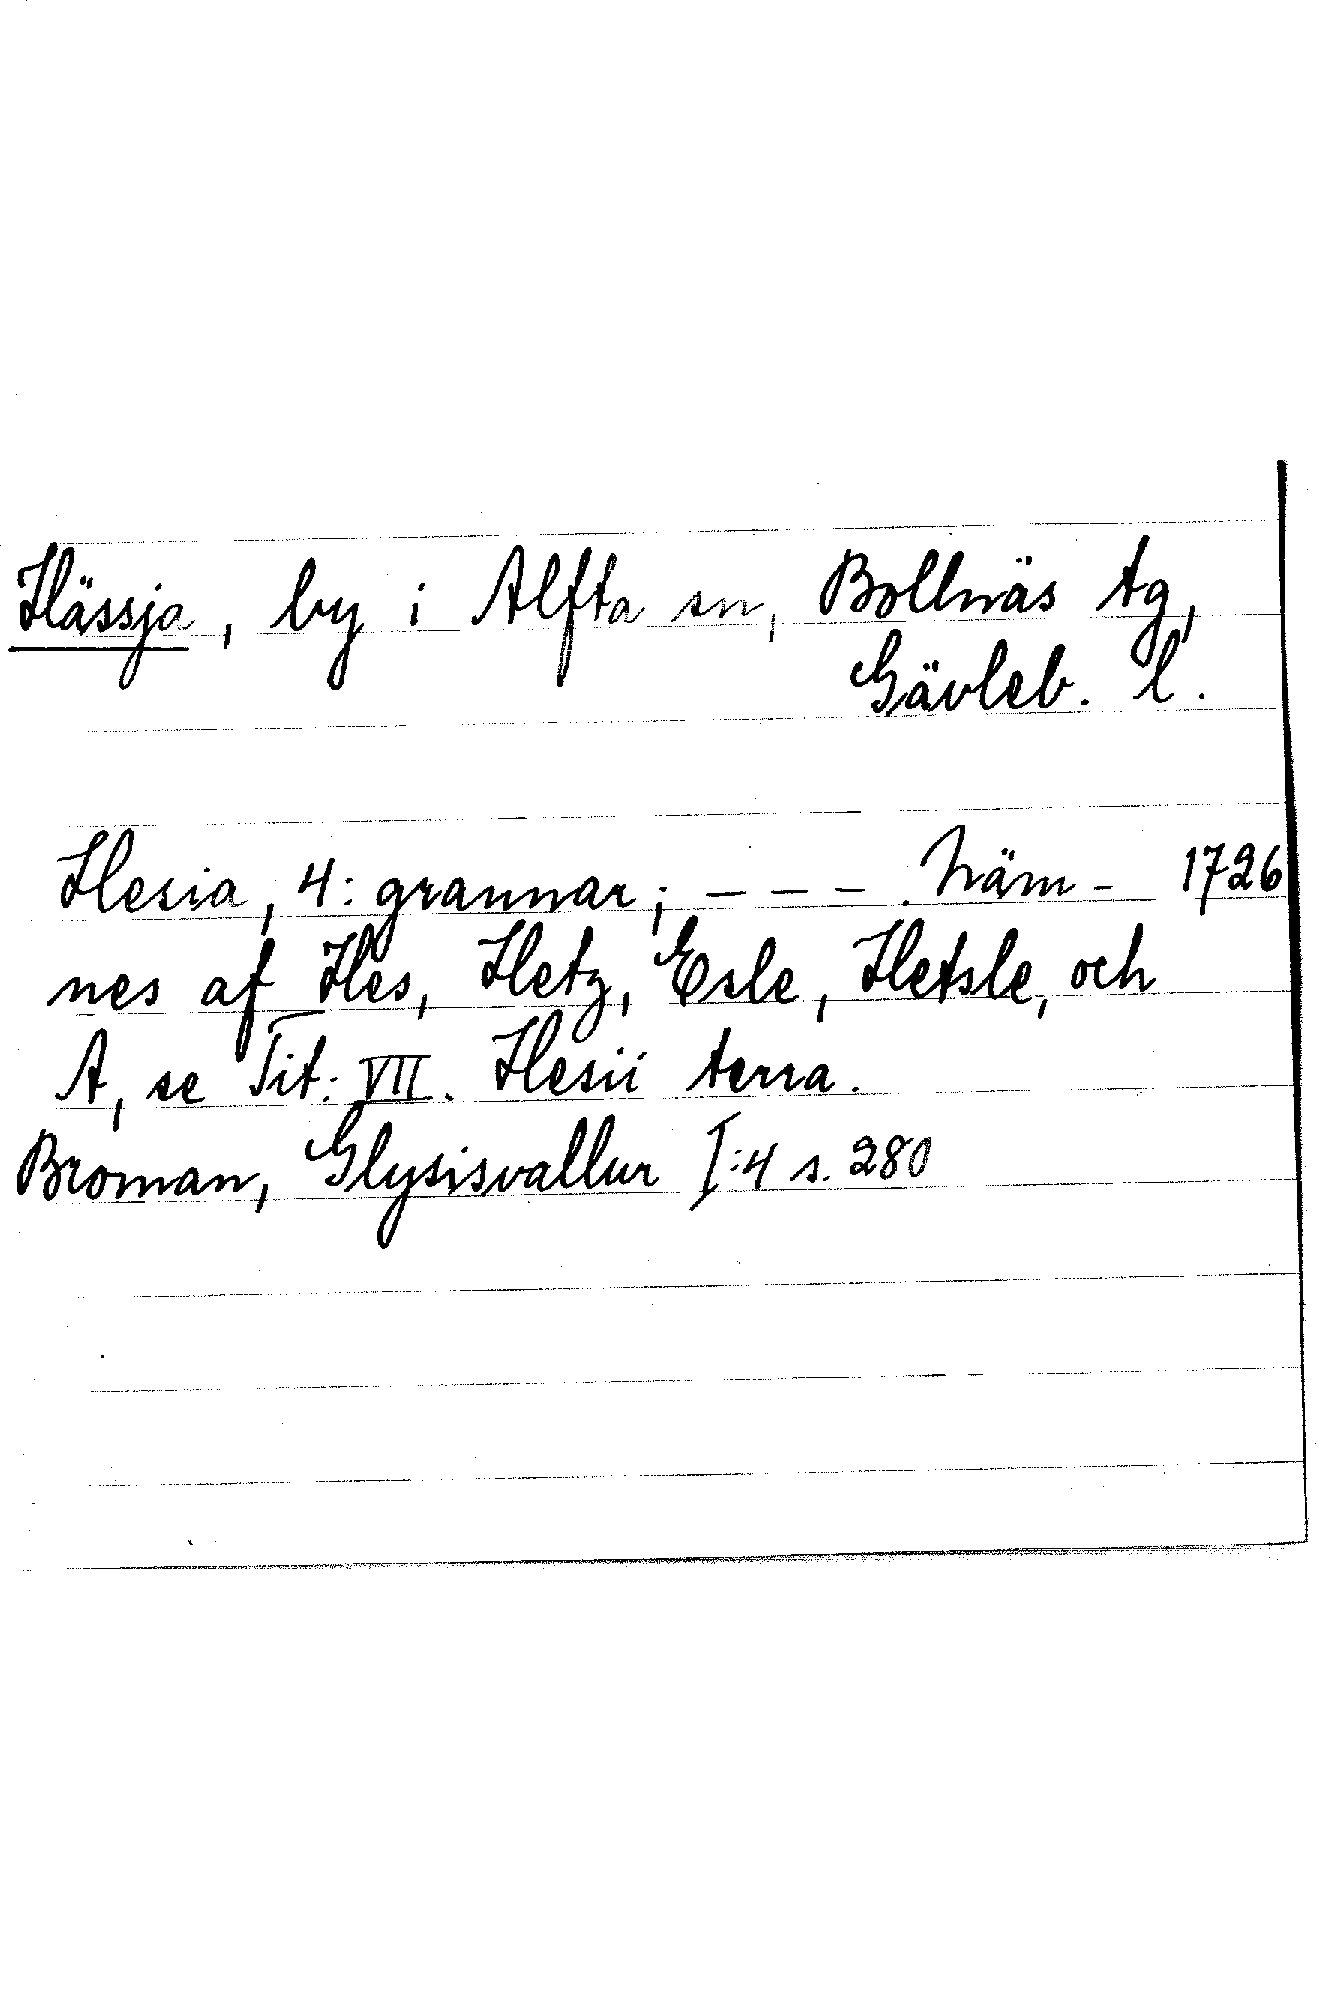 Hässja, by i Alfta sn, Bollnäs tg,
Gävleb. l.
Hesia, 4: grannar; – – – . Näm- 1726
nes af Hes, Hetz, Esle, Hetsle, och
A, se Tit: VII. Hesii terra.
Broman, Glysisvallur I:4 s. 280